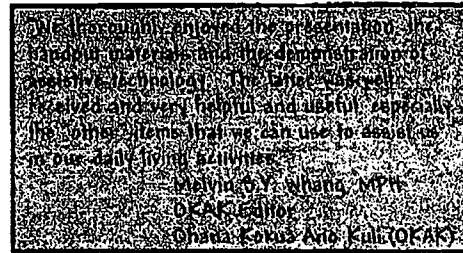 "We thoroughly enjoyed the presentation, the
handout materials and the demonstration of
assistive technology. The latter was well
received and very helpful and useful especially
the "other" items that we can use to assist us
in our daily living activities."
Melvin Whang, MPH
OKAK Editor
Ohana Kokua (OKAK)